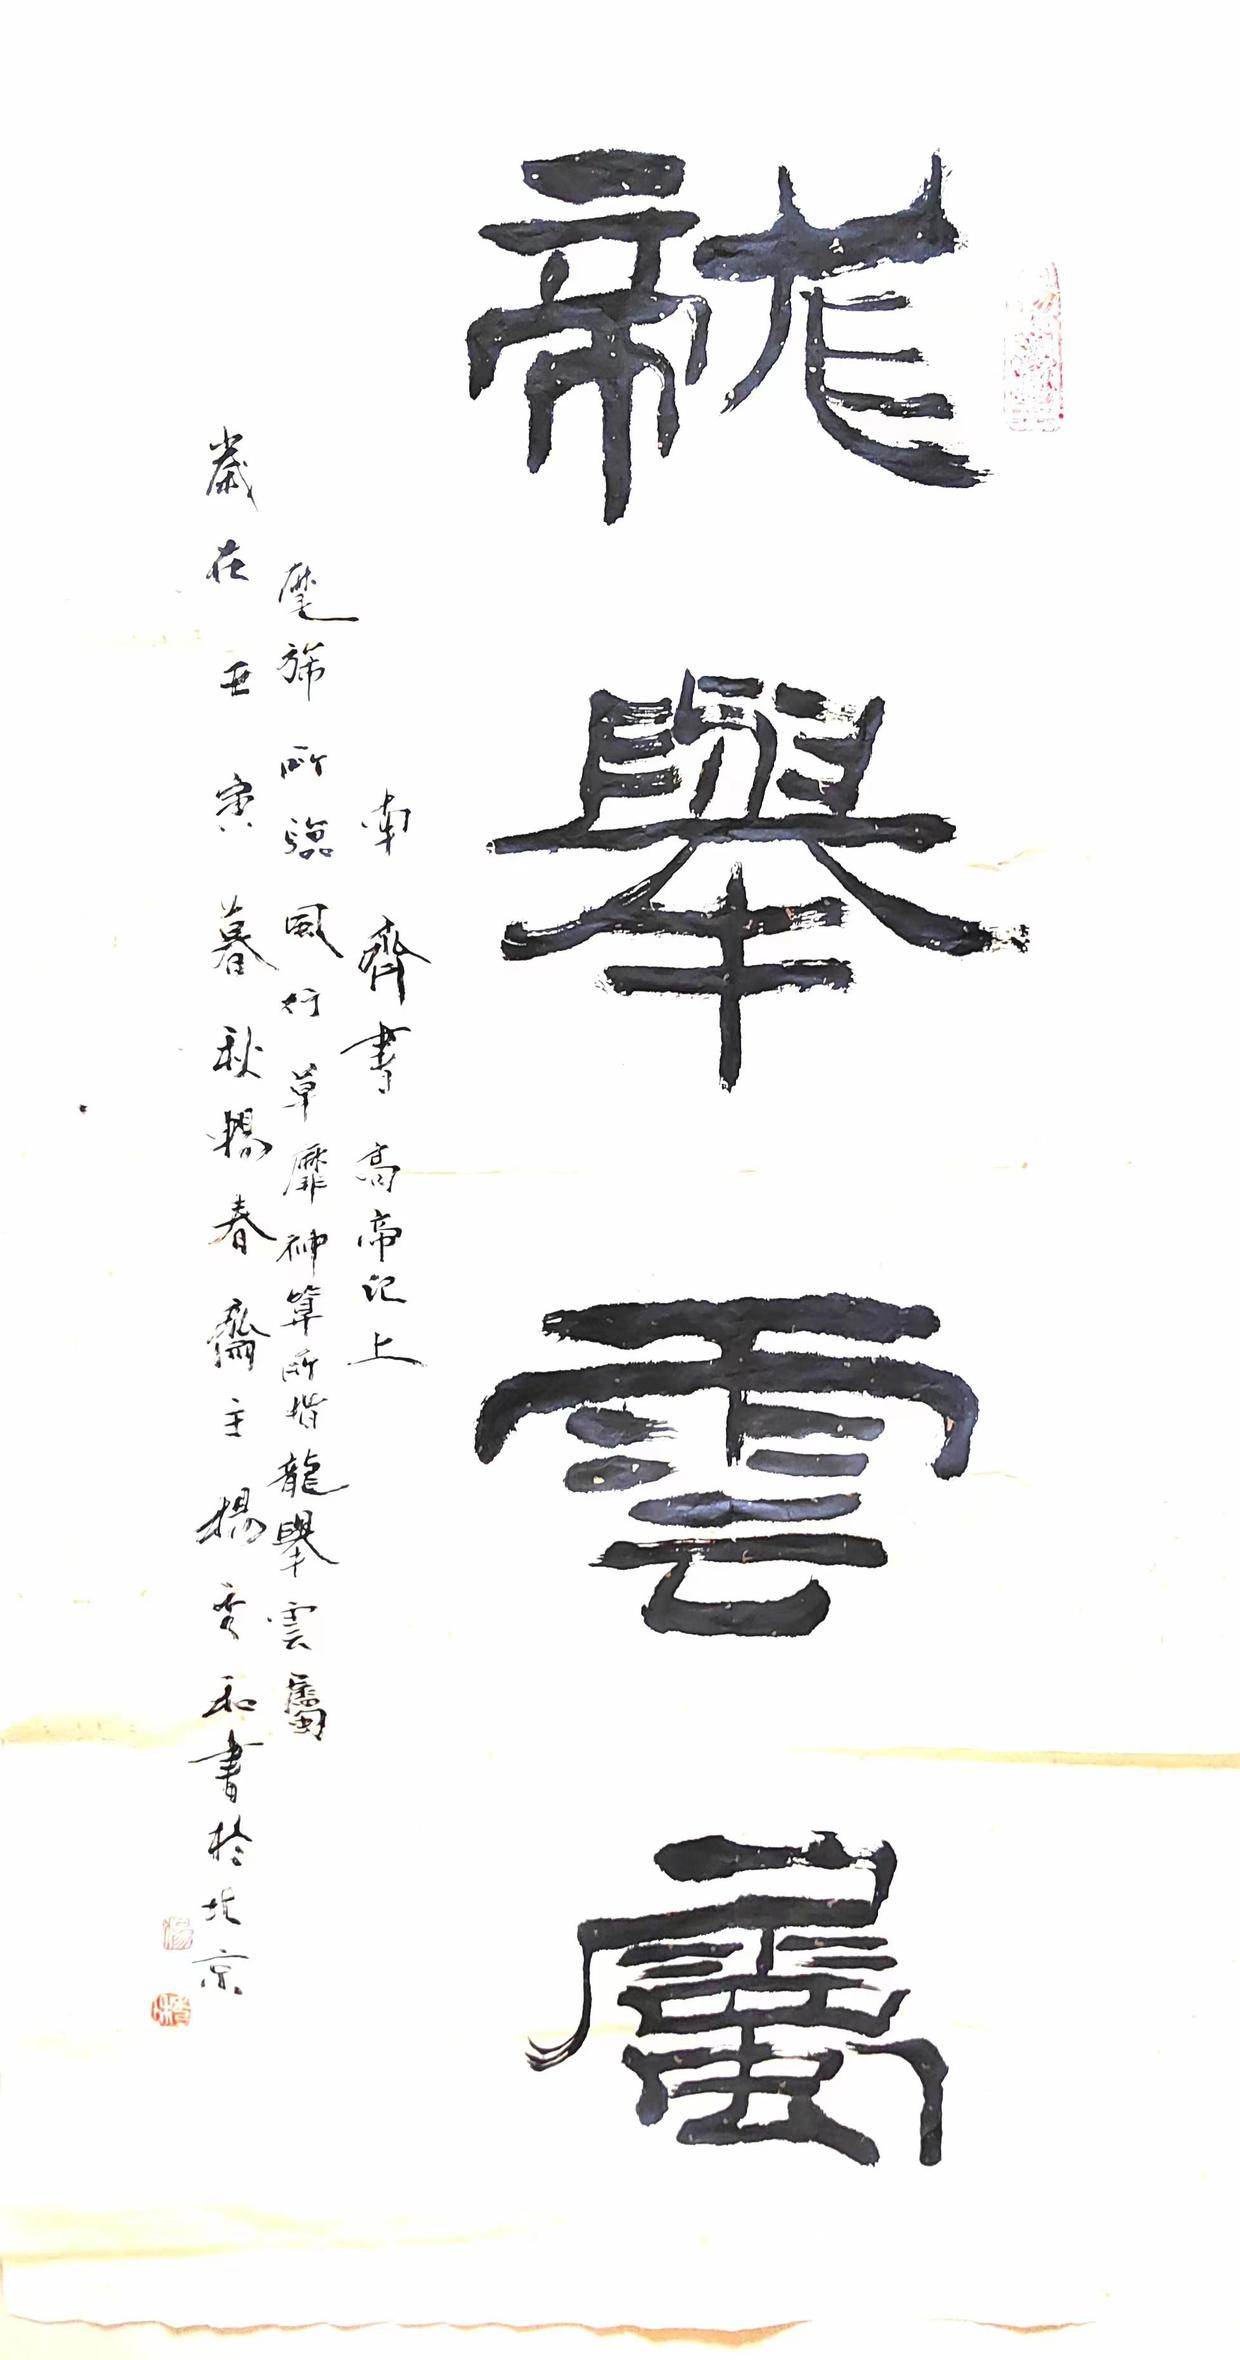 龍舉雲屬
南齊書高帝記上
麾旆所臨風行草靡神算所指龍舉雲屬
歲在壬寅暮秋楊春齋主楊和書於北京